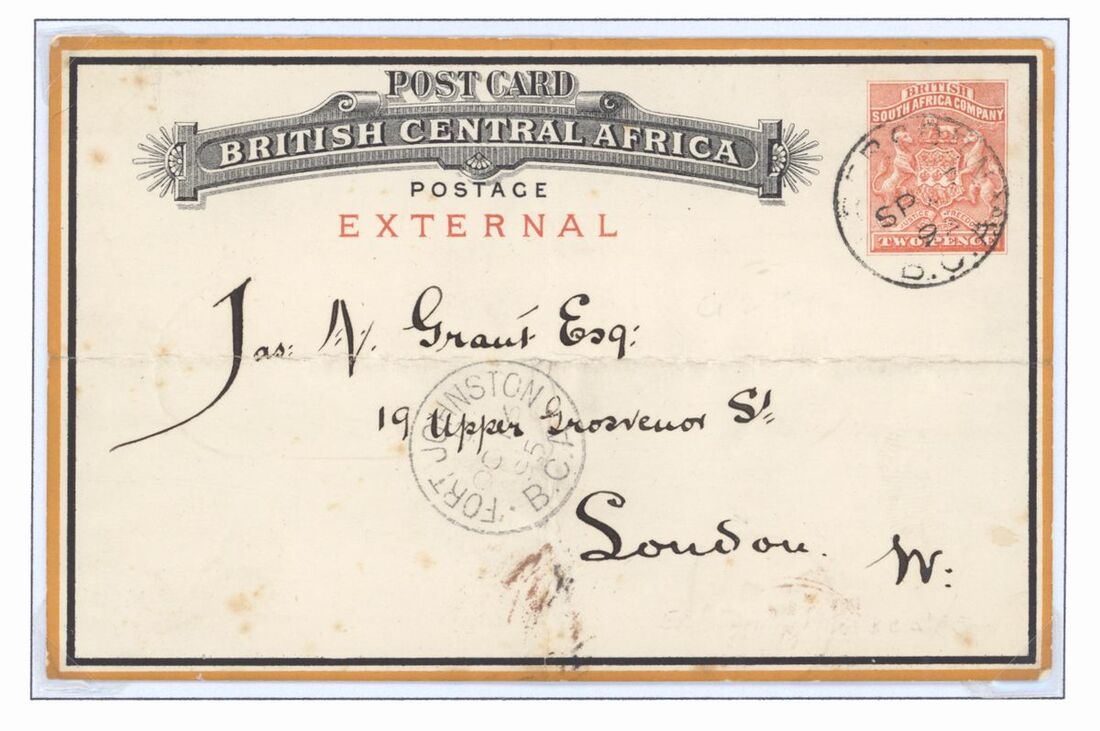 POST CARD
BRITISH CENTRAL AFRICA
POSTAGE
EXTERNAL
BRITISH
SOUTH AFRICA COMPANY
JUSTICE FREEDOM
TWO PENCE
SP
B.C.A
Jas: N. Grant Esq:
19 Upper Grosvenor St
London. W:
FORT JOHNSTON
OC
95
B.C.A.